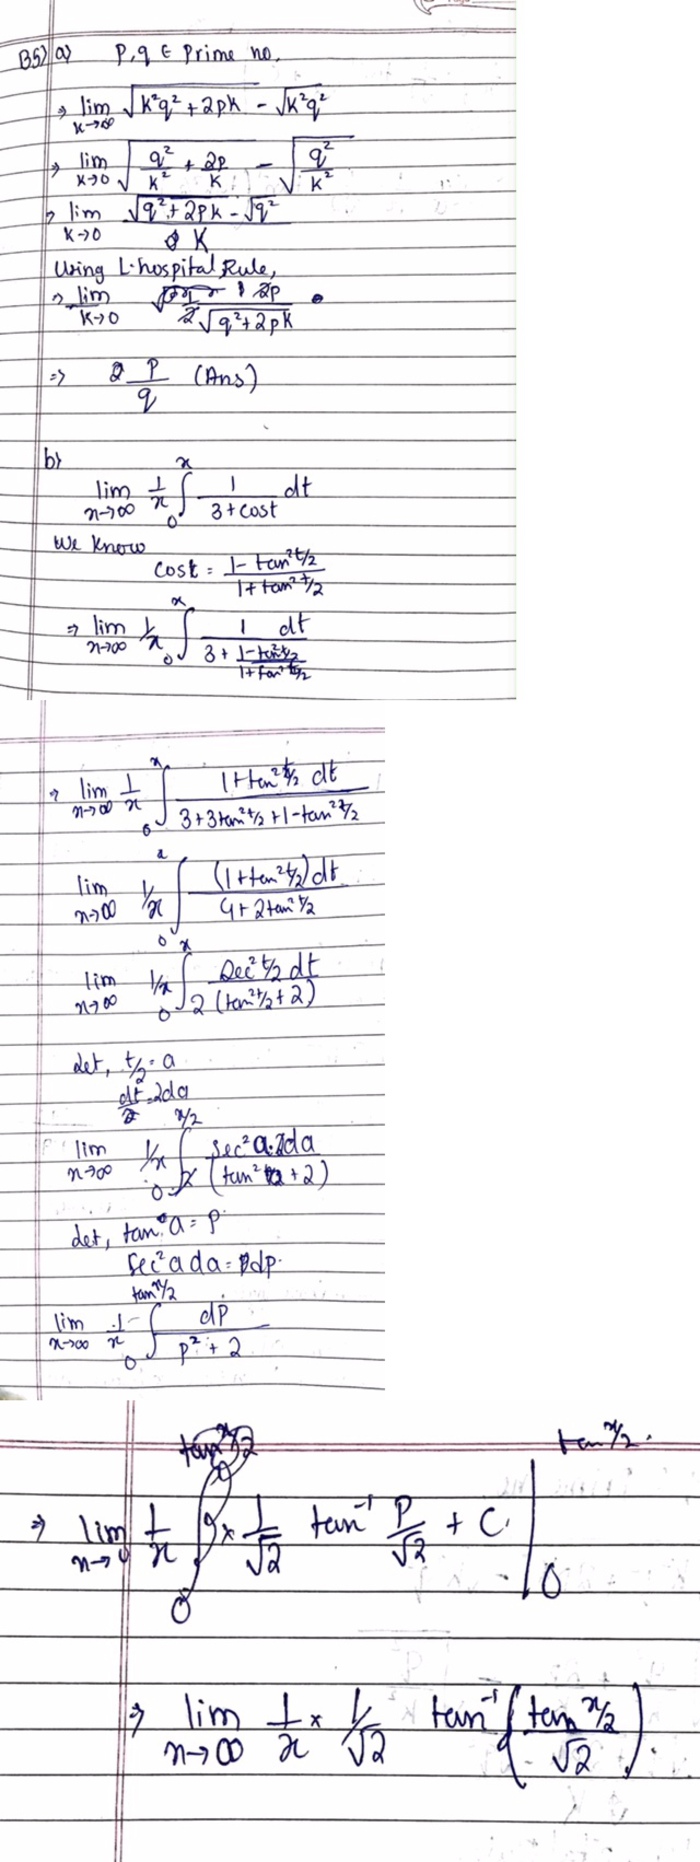 B5) a) P, q ∈ Prime no.
⇒ lim k→∞ √(k²q² + 2pk) - √(k²q²)
⇒ lim k→0 √(q²/k² + 2p/k) - √(q²/k²)
⇒ lim k→0 (√(q² + 2pk) - √q²) / K
Using L-hospital Rule,
⇒ lim k→0 1 2p / 2√(q²+2pk)
⇒ P/q (Ans)
b)
lim x→∞ 1/x ∫₀ˣ 1/(3+cost) dt
We know
cost = (1 - tan² t/2) / (1 + tan² t/2)
⇒ lim x→∞ 1/x ∫₀ˣ 1 dt / (3 + (1 - tan² t/2)/(1 + tan² t/2))
⇒ lim x→∞ 1/x ∫₀ˣ 1+tan² t/2 dt / (3+3tan² t/2 +1-tan² t/2)
lim x→∞ 1/x ∫₀ˣ (1+tan² t/2)dt / (4+2tan² t/2)
lim x→∞ 1/x ∫₀ˣ Sec² t/2 dt / 2(tan² t/2 + 2)
det, t/2 = a
dt = 2da
lim x→∞ 1/x ∫₀^(x/2) sec² a.2da / 2(tan² a + 2)
det, tan a = P
sec² a da = dp.
lim x→∞ 1/x ∫₀^(tan x/2) dP / (p² + 2)
⇒ lim x→∞ 1/x × 1/√2 tan⁻¹ P/√2 + C. |₀^(tan x/2)
⇒ lim x→∞ 1/x × 1/√2 tan⁻¹(tan x/2 / √2).